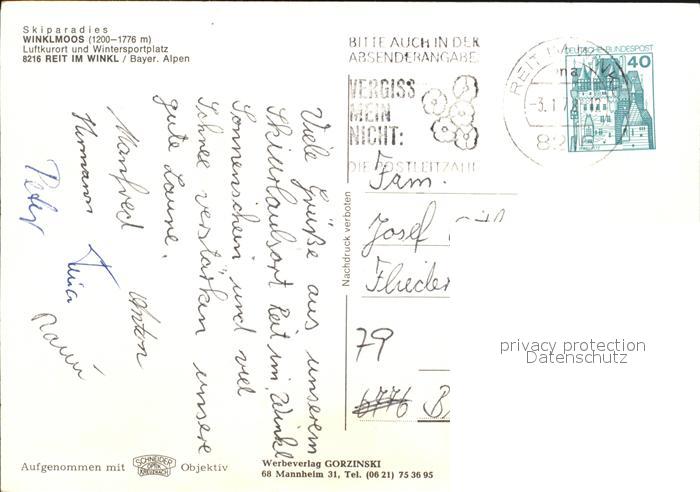 Skiparadies
WINKLMOOS (1200—1776 m)
Luftkurort und Wintersportplatz
8216 REIT IM WINKL / Bayer. Alpen
BITTE AUCH IN DER
ABSENDERANGABE
VERGISS
MEIN
NICHT:
DIE POSTLEITZAHL
REIT IM WINKL
DEUTSCHE BUNDESPOST
40
Viele Grüße aus unserem
Skiurlaubsort Reit im Winkl
Sonnenschein und viel
Schnee verstärken unsere
gute Laune.
Manfred Anton
Hermann
Peter
Nachdruck verboten
Fam.
Josef
Flieder
79
6776 B
privacy protection
Datenschutz
Aufgenommen mit SCHNEIDER OPTIK KREUZNACH Objektiv
Werbeverlag GORZINSKI
68 Mannheim 31, Tel. (06 21) 75 36 95